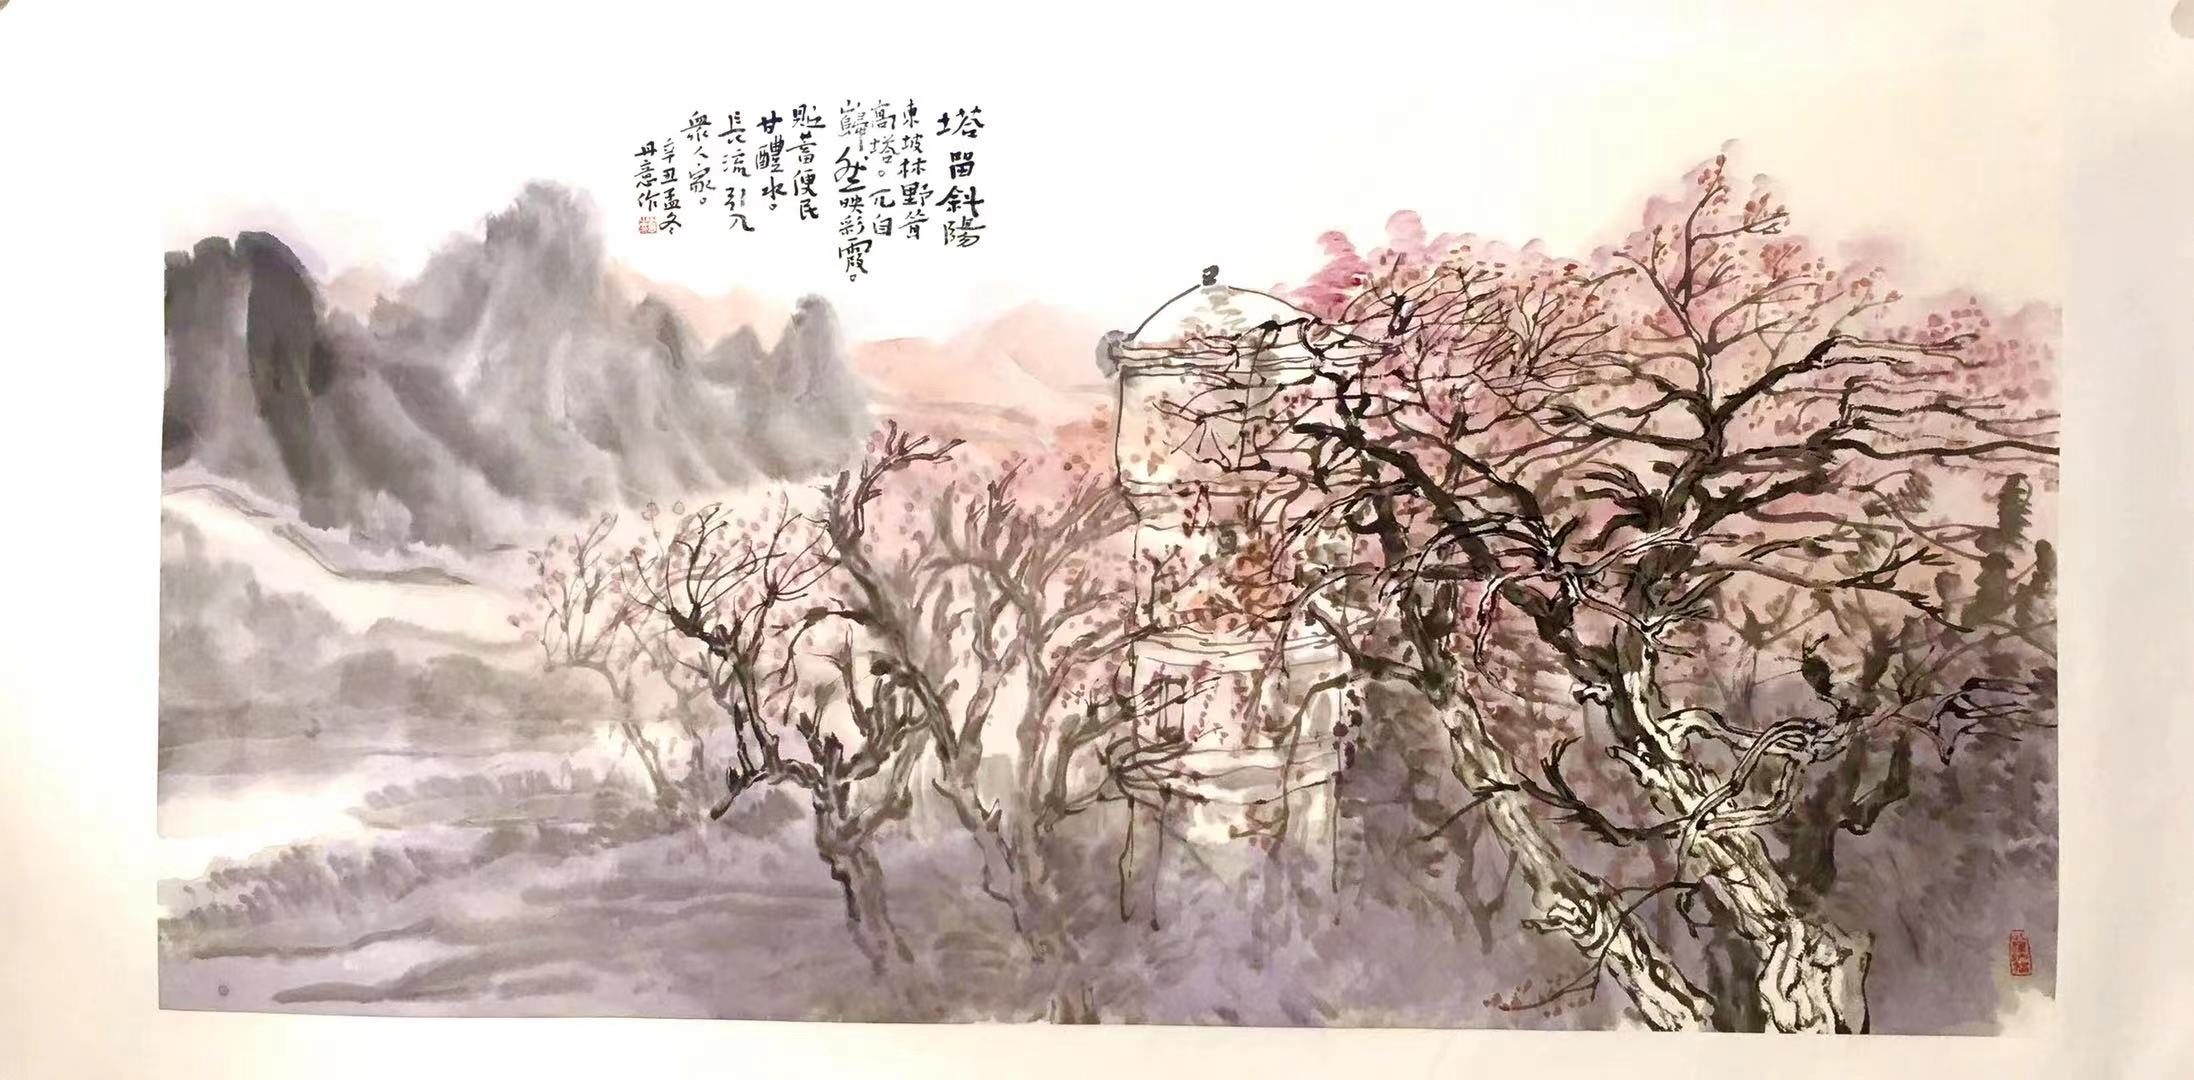 塔留斜陽
東坡林野聳
高塔。兀自
巋然映彩霞。
貯蓄便民
甘醴水。
長流引入
衆人家。
辛丑孟冬
丹意作